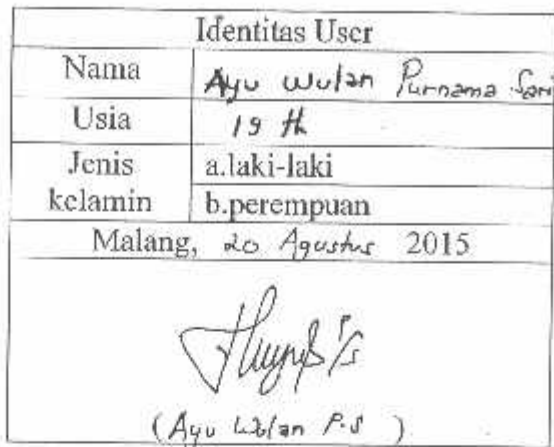 Identitas User
Nama Ayu Wulan Purnama Sari
Usia 19 th
Jenis kelamin
a.laki-laki
b.perempuan
Malang, 20 Agustus 2015
(Ayu Wulan P.S )